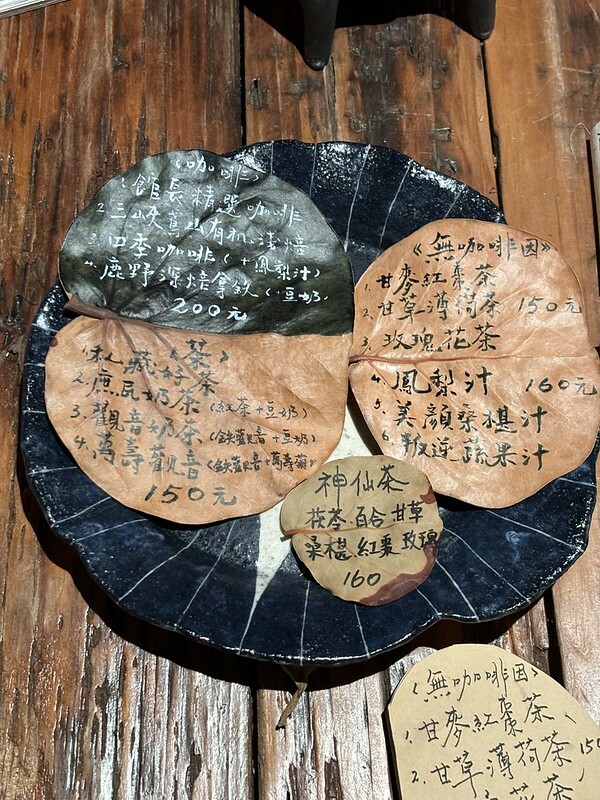 《咖啡》
1. 館長精選咖啡
2. 三峽鳶山有机淺焙
3. 四季咖啡(+鳳梨汁)
4. 鹿野深焙拿鉄(+豆奶)
200元
《茶》
1. 私藏好茶
2. 庶民奶茶(紅茶+豆奶)
3. 觀音奶茶(鉄觀音+豆奶)
4. 萬壽觀音(鉄觀音+萬壽菊)
150元
《無咖啡因》
1. 甘麥紅棗茶
2. 甘草薄荷茶 150元
3. 玫瑰花茶
4. 鳳梨汁 160元
5. 美顏桑椹汁
6. 叛逆蔬果汁
神仙茶
茯苓 百合 甘草
桑椹 紅棗 玫瑰
160
《無咖啡因》
1. 甘麥紅棗茶
2. 甘草薄荷茶 150
花茶